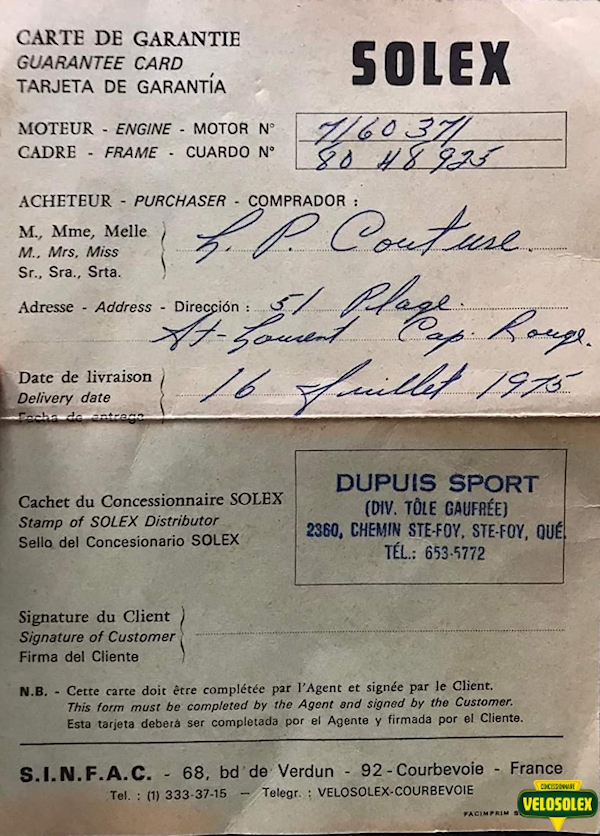 CARTE DE GARANTIE
GUARANTEE CARD
TARJETA DE GARANTÍA
SOLEX
MOTEUR - ENGINE - MOTOR N° 7160371
CADRE - FRAME - CUARDO N° 80 48925
ACHETEUR - PURCHASER - COMPRADOR :
M., Mme, Melle
M., Mrs, Miss
Sr., Sra., Srta.
L. P. Couture
Adresse - Address - Dirección : 51 Plage
St-Laurent Cap. Rouge.
Date de livraison
Delivery date
Fecha de entrega
16 Juillet 1975
Cachet du Concessionnaire SOLEX
Stamp of SOLEX Distributor
Sello del Concesionario SOLEX
DUPUIS SPORT
(DIV. TÔLE GAUFRÉE)
2360, CHEMIN STE-FOY, STE-FOY, QUÉ.
TÉL.: 653-5772
Signature du Client
Signature of Customer
Firma del Cliente
N.B. - Cette carte doit être complétée par l'Agent et signée par le Client.
This form must be completed by the Agent and signed by the Customer.
Esta tarjeta deberá ser completada por el Agente y firmada por el Cliente.
S.I.N.F.A.C. - 68, bd de Verdun - 92 - Courbevoie - France
Tel. : (1) 333-37-15 — Telegr. : VELOSOLEX-COURBEVOIE
FACIMPRIM
CONCESSIONNAIRE
VELOSOLEX